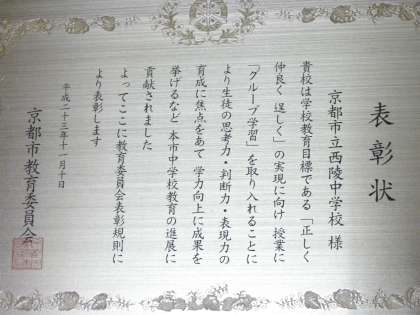 表彰状
京都市立西陵中学校 様
貴校は学校教育目標である「正しく
仲良く 逞しく」の実現に向け 授業に
「グループ学習」を取り入れることに
より生徒の思考力・判断力・表現力の
育成に焦点をあて 学力向上に成果を
挙げるなど 本市中学校教育の進展に
貢献されました
よってここに教育委員会表彰規則に
より表彰します
平成二十三年十一月十日
京都市教育委員会